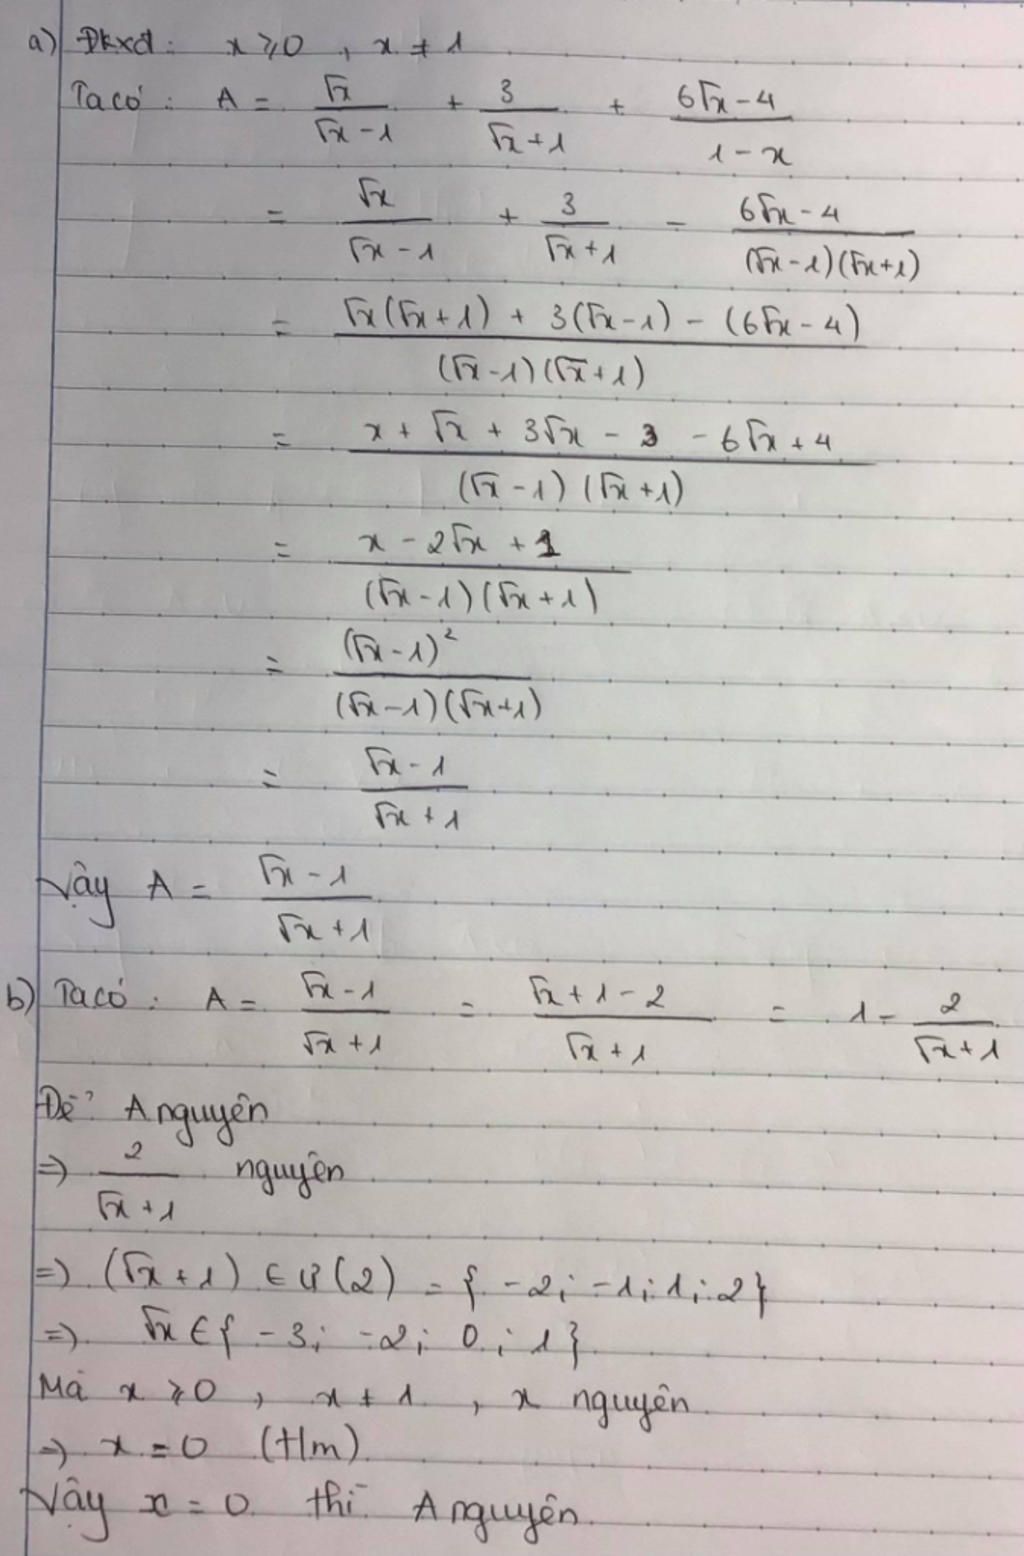 a) Đkxđ: x ⩾ 0 , x ≠ 1
Ta có: A = √x/(√x - 1) + 3/(√x + 1) + (6√x - 4)/(1 - x)
= √x/(√x - 1) + 3/(√x + 1) - (6√x - 4)/((√x - 1)(√x + 1))
= (√x(√x + 1) + 3(√x - 1) - (6√x - 4))/((√x - 1)(√x + 1))
= (x + √x + 3√x - 3 - 6√x + 4)/((√x - 1)(√x + 1))
= (x - 2√x + 1)/((√x - 1)(√x + 1))
= (√x - 1)²/((√x - 1)(√x + 1))
= (√x - 1)/(√x + 1)
Vậy A = (√x - 1)/(√x + 1)
b) Ta có: A = (√x - 1)/(√x + 1) = (√x + 1 - 2)/(√x + 1) = 1 - 2/(√x + 1)
Để A nguyên
⇒ 2/(√x + 1) nguyên
⇒ (√x + 1) ∈ Ư(2) = { -2; -1; 1; 2}
⇒ √x ∈ { -3; -2; 0; 1}
Mà x ⩾ 0 , x ≠ 1 , x nguyên
⇒ x = 0 (t/m)
Vậy x = 0 thì A nguyên.